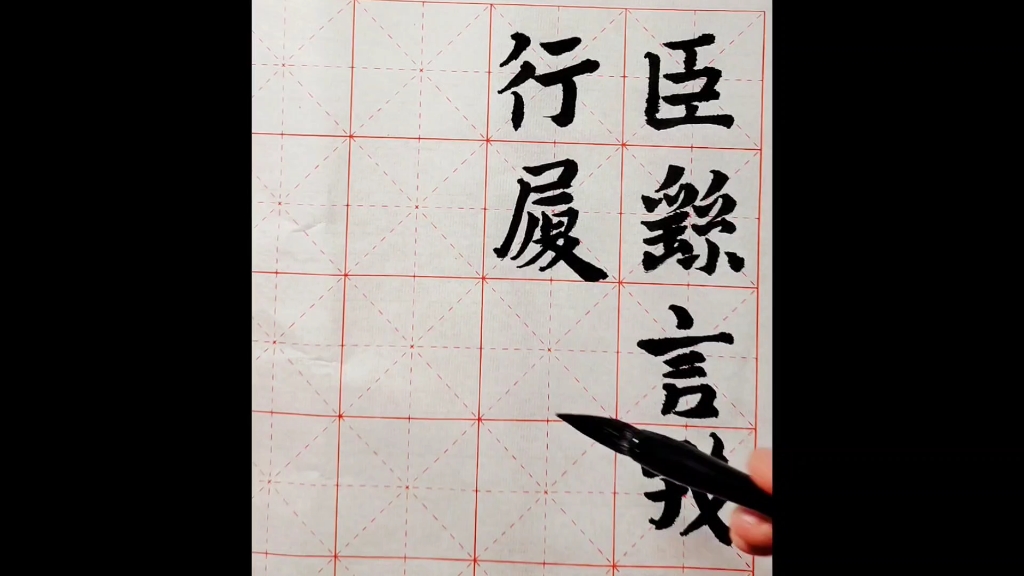 臣繇言
行履